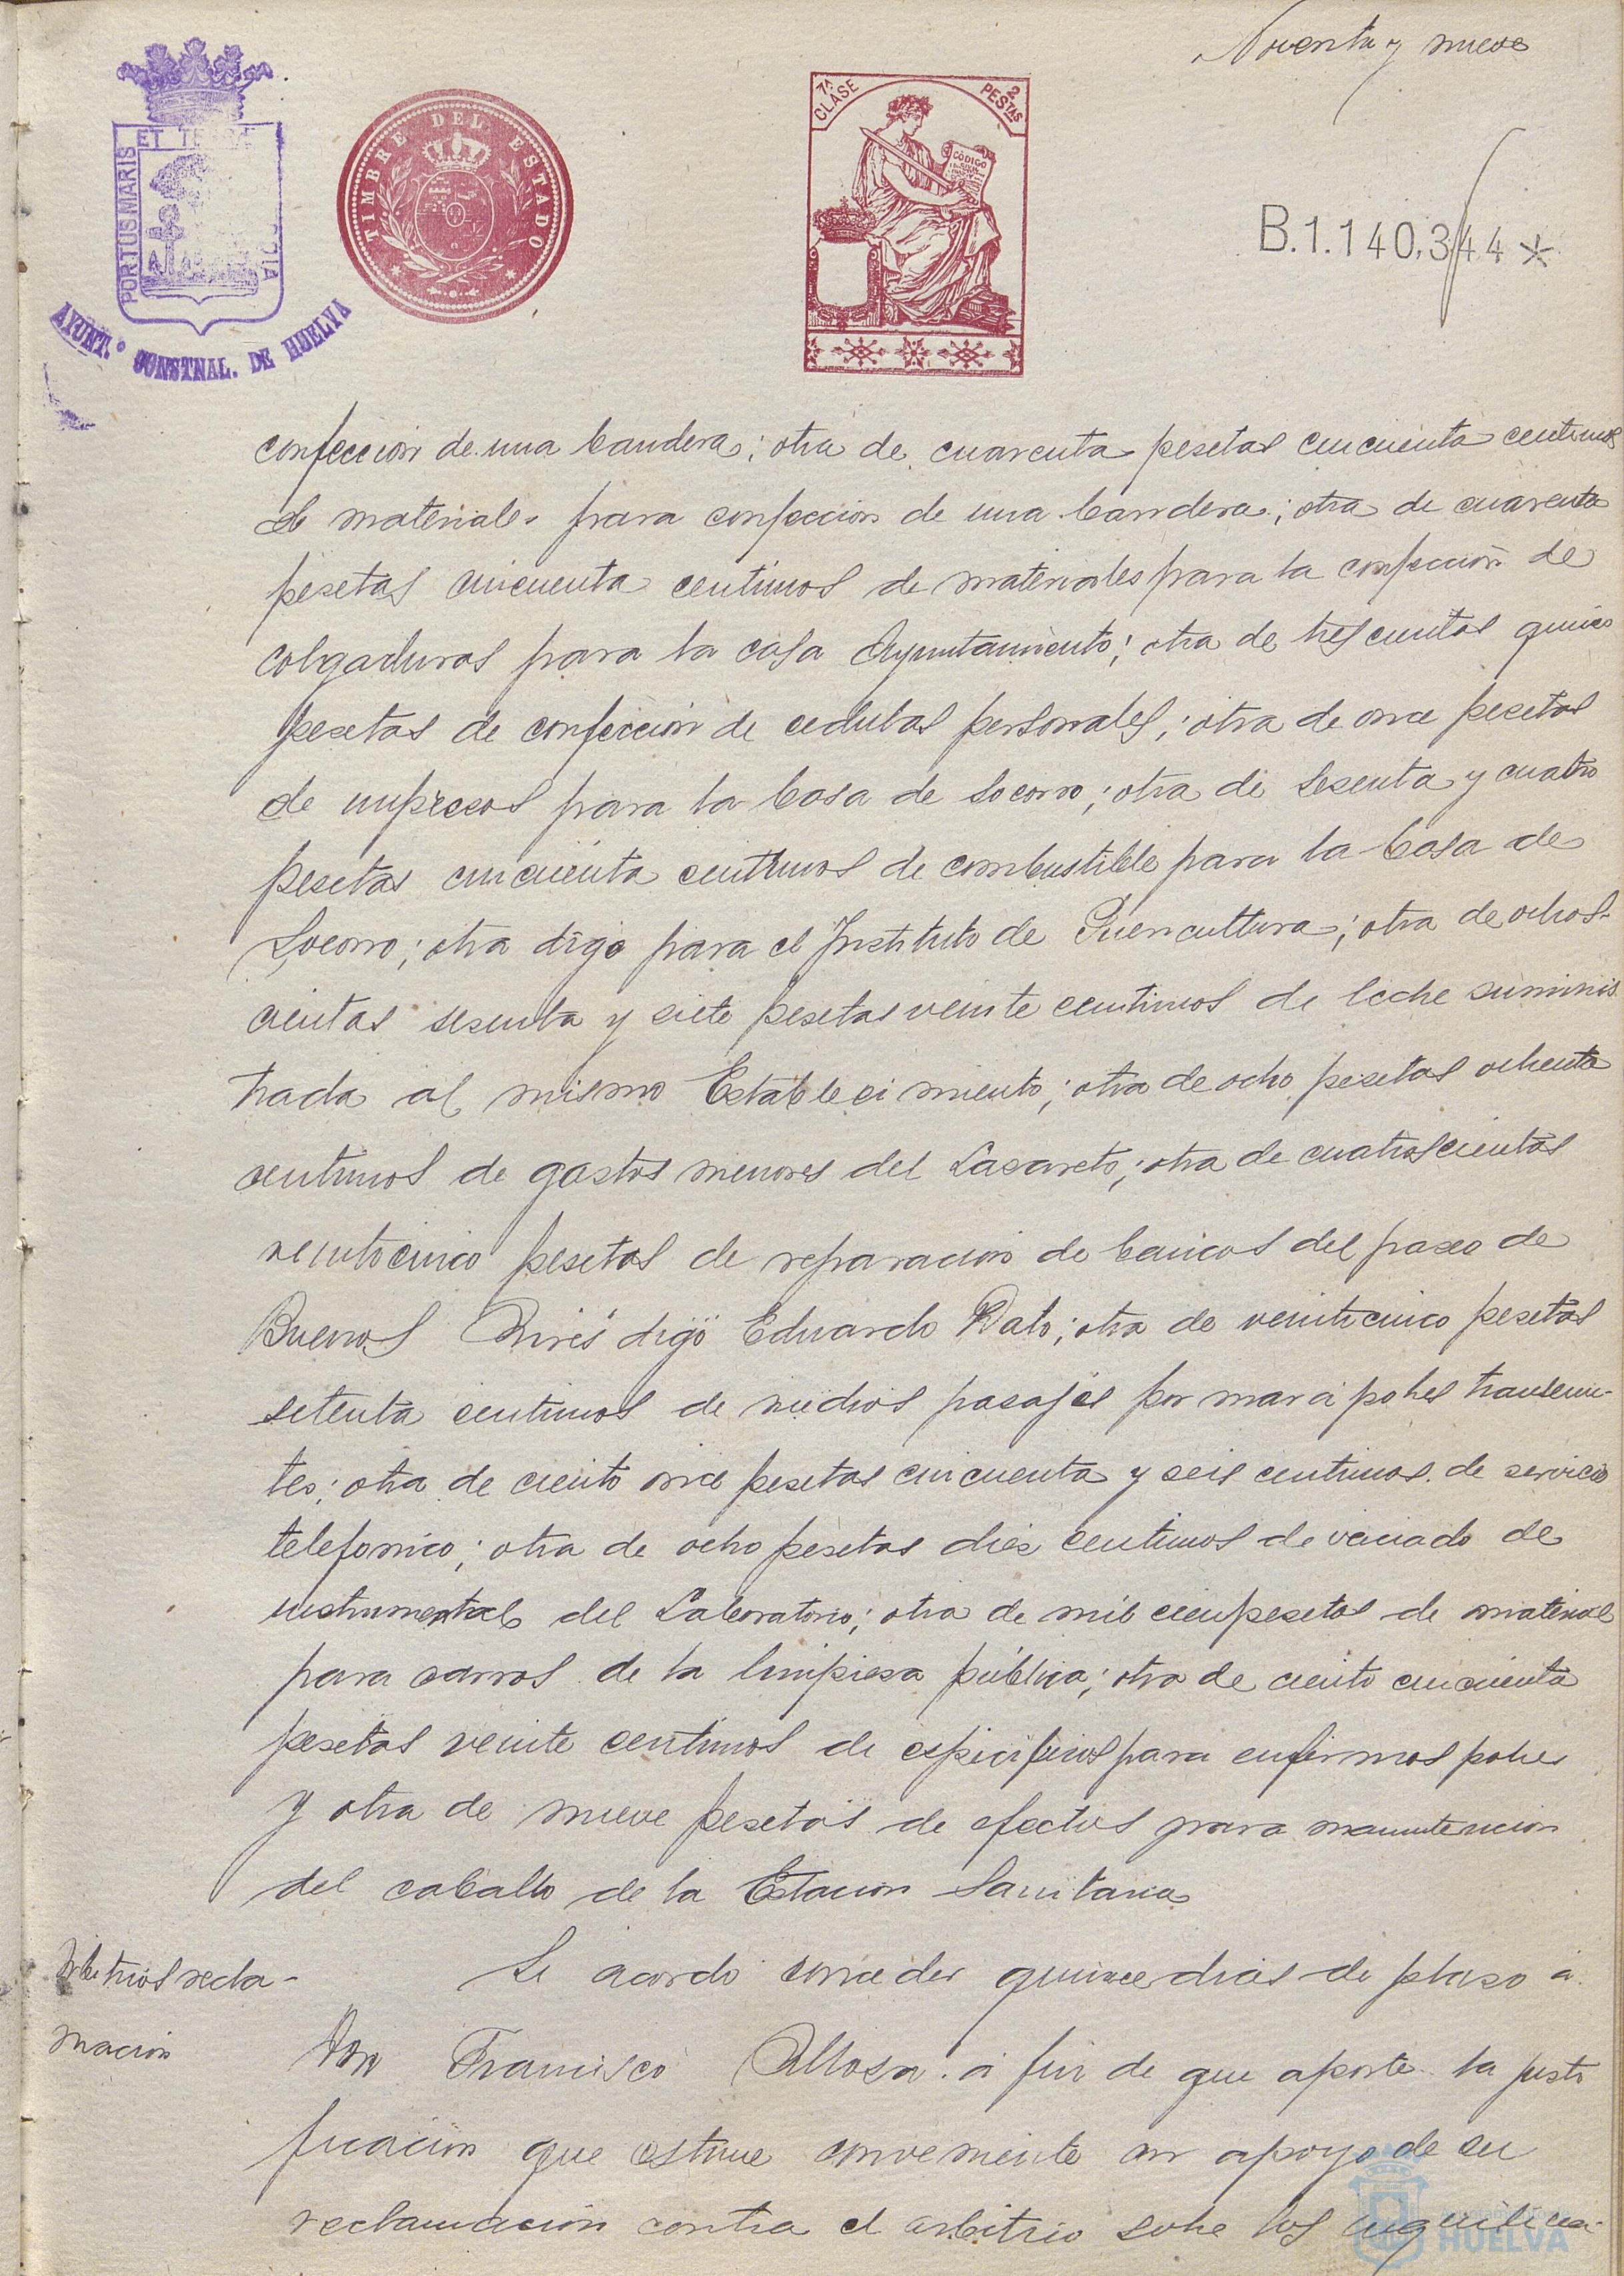 Noventa y nueve
PORTUS MARIS ET TERRÆ CUSTODIA
AYUNT.º CONSTNAL. DE HUELVA
TIMBRE DEL ESTADO
7ª CLASE
2 PESTAS
CÓDIGO
B.1.140.344*
confección de una bandera; otra de cuarenta pesetas cincuenta centimos
de materiales para confeccion de una bandera; otra de cuarenta
pesetas cincuenta centimos de materiales para la confección de
colgaduras para la casa Ayuntamiento; otra de trescientas quince
pesetas de confección de cedulas personales; otra de once pesetas
de impresos para la Casa de Socorro; otra de sesenta y cuatro
pesetas cincuenta centimos de combustible para la Casa de
Socorro; otra digo para el Instituto de Puericultura; otra de ochos-
cientas sesenta y siete pesetas veinte centimos de leche suminis
trada al mismo Establecimiento; otra de ocho pesetas ochenta
centimos de gastos menores del Lazareto; otra de cuatroscientas
veinticinco pesetas de reparacion de bancos del paseo de
Buenos Aires digo Eduardo Dato; otra de veinticinco pesetas
setenta centimos de medios pasajes por mar á pobres transeun-
tes; otra de ciento once pesetas cincuenta y seis centimos de servicio
telefonico; otra de ocho pesetas diez centimos de vaciado de
instrumental del Laboratorio; otra de mil cien pesetas de material
para carros de la limpieza pública; otra de ciento cincuenta
pesetas veinte centimos de especificos para enfermos pobres
y otra de nueve pesetas de efectos para manutencion
del caballo de la Estacion Sanitaria
Arbitrios recla-
macion
Se acordó conceder quince dias de plazo á
Don Francisco á fin de que aporte la justi
ficación que estime conveniente en apoyo de su
reclamación contra el arbitrio sobre los inquilina-
HUELVA